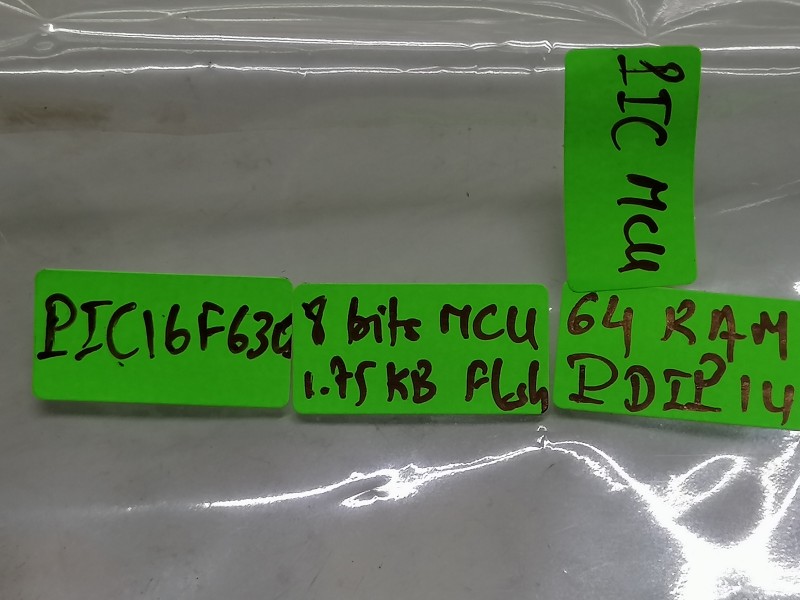 PIC MCU
PIC16F630
8 bits MCU
1.75 KB Flsh
64 RAM
PDIP 14